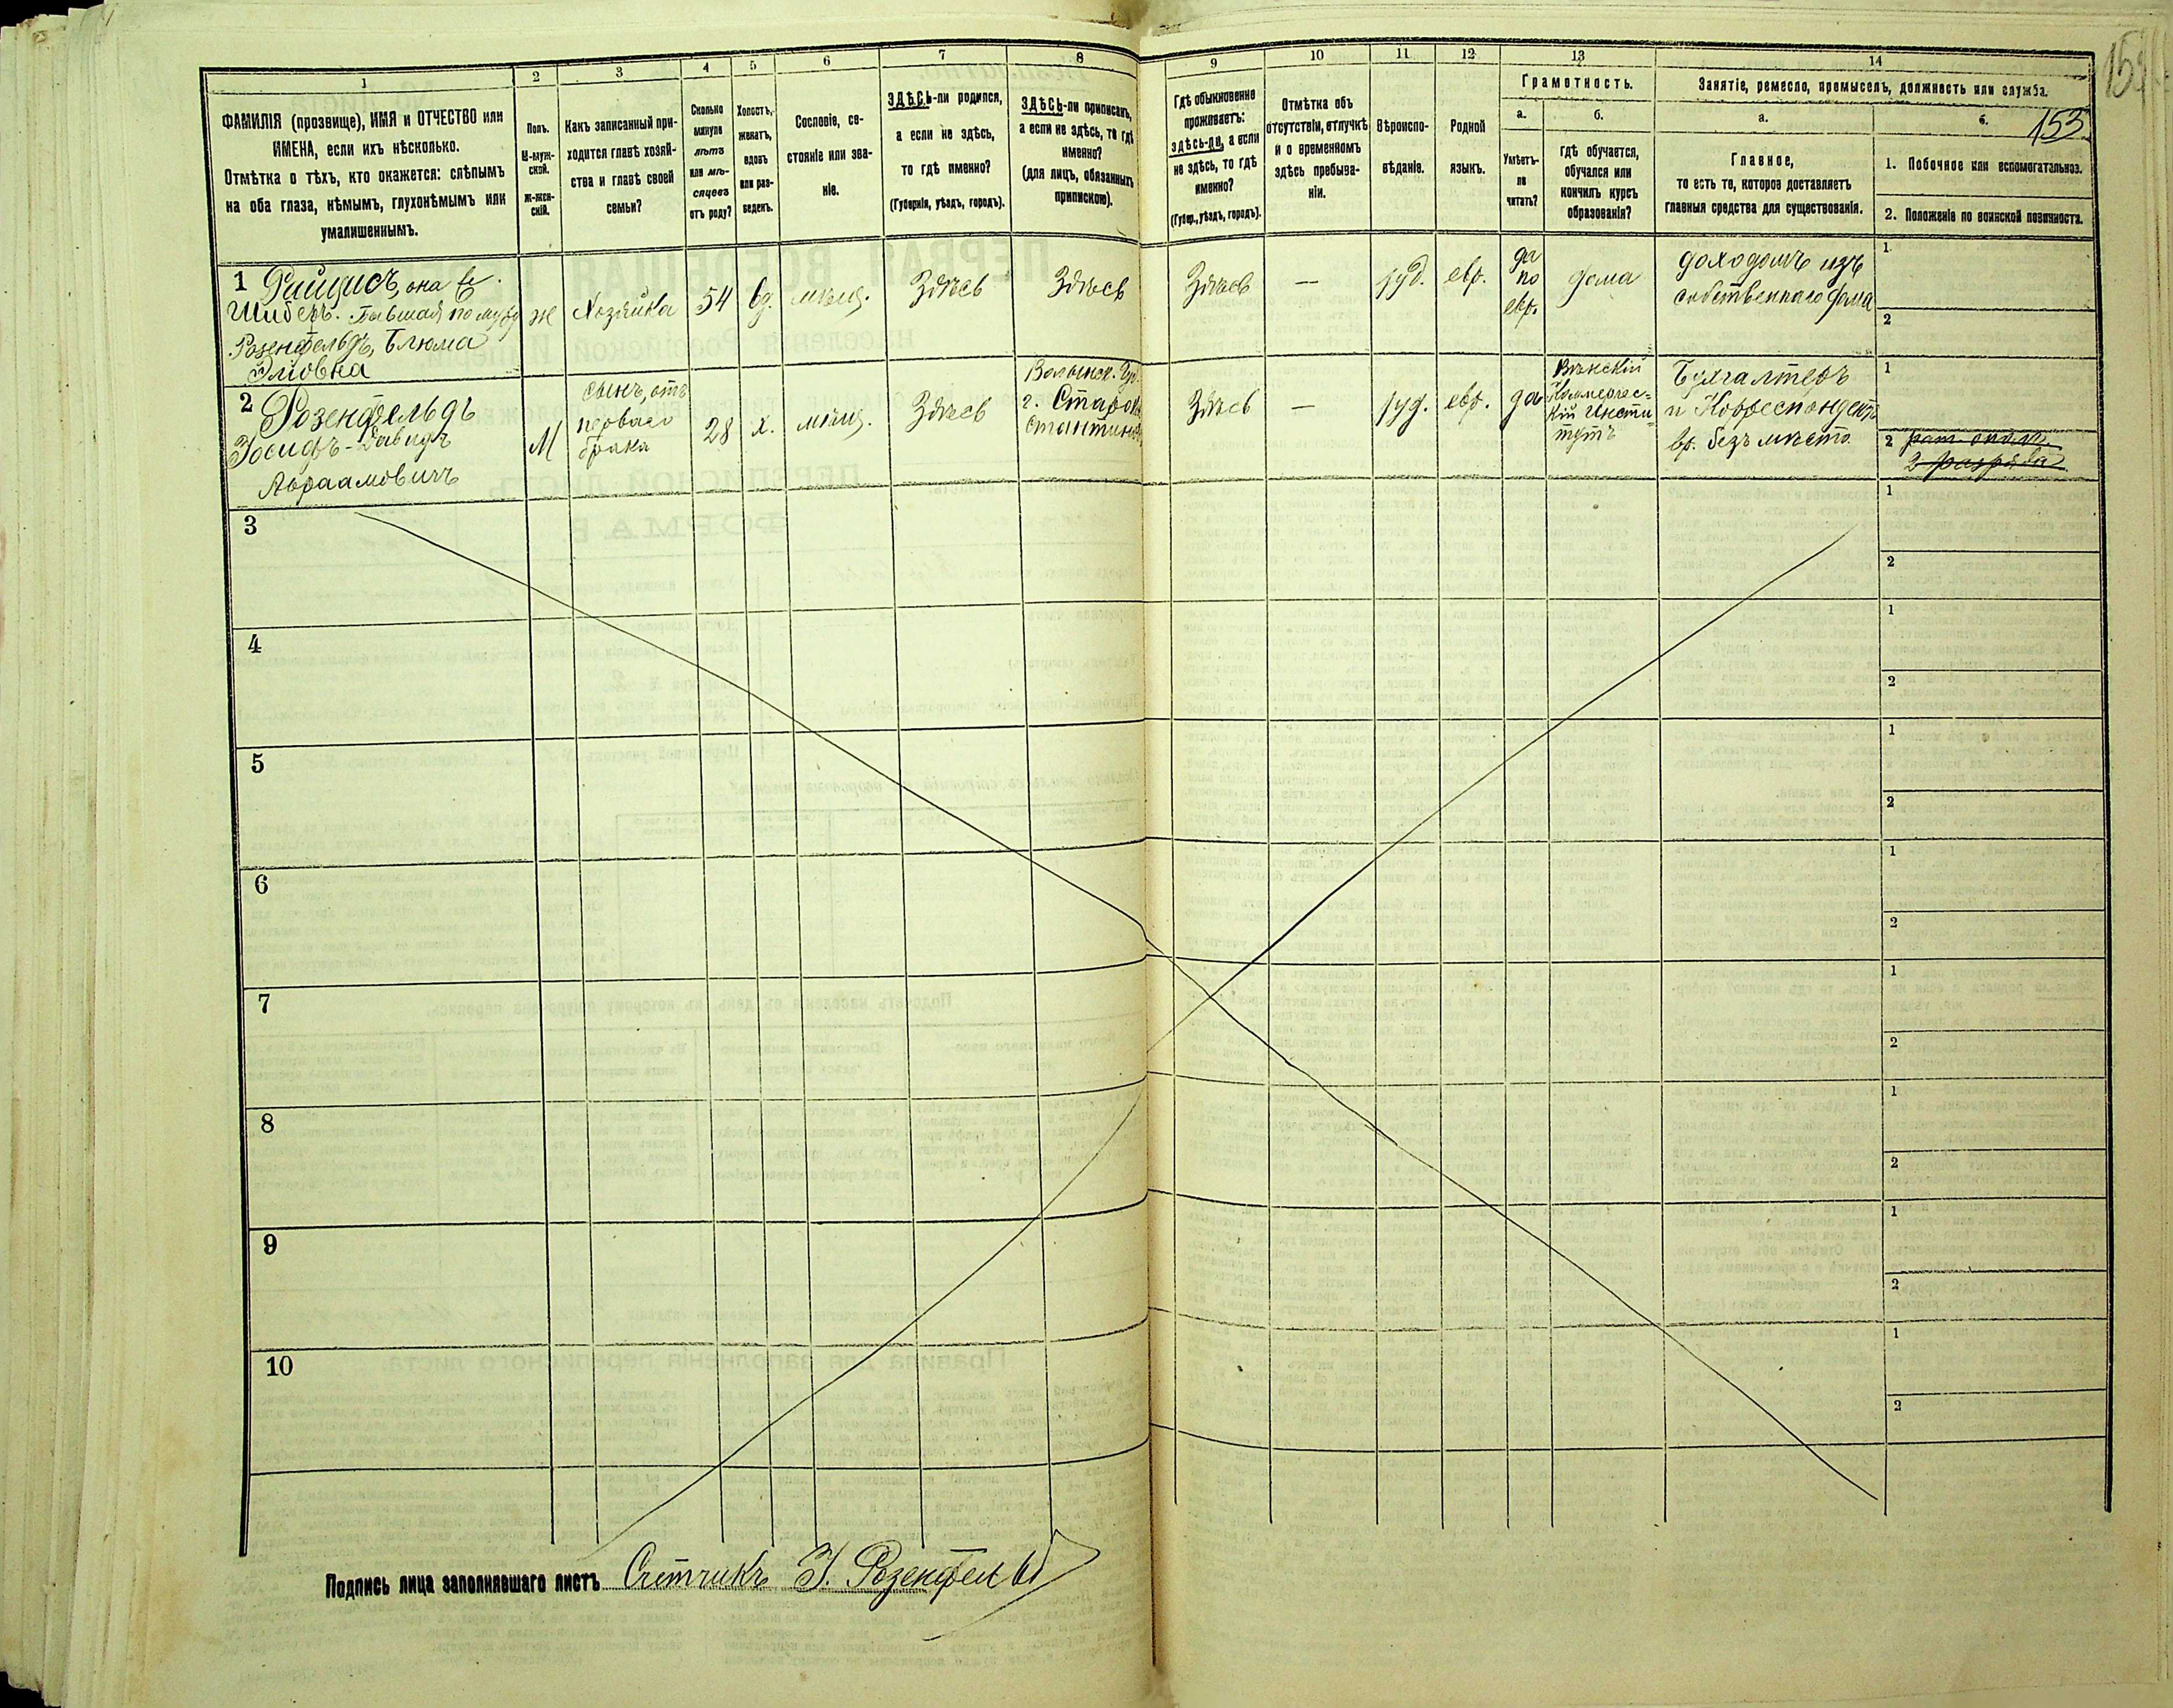 153
1
ФАМИЛІЯ (прозвище), ИМЯ и ОТЧЕСТВО или
ИМЕНА, если ихъ нѣсколько.
Отмѣтка о тѣхъ, кто окажется: слѣпымъ
на оба глаза, нѣмымъ, глухонѣмымъ или
умалишеннымъ.
2
Полъ.
М-муж-
ской.
Ж-жен-
скій.
3
Какъ записанный при-
ходится главѣ хозяй-
ства и главѣ своей
семьи?
4
Сколько
минуло
лѣтъ
или мѣ-
сяцевъ
отъ роду?
5
Холостъ,
женатъ,
вдовъ
или раз-
веденъ.
6
Сословіе, со-
стояніе или зва-
ніе.
7
ЗДѢСЬ-ли родился,
а если не здѣсь,
то гдѣ именно?
(Губернія, уѣздъ, городъ).
8
ЗДѢСЬ-ли приписанъ,
а если не здѣсь, то гдѣ
именно?
(для лицъ, обязанныхъ
припискою).
9
Гдѣ обыкновенно
проживаетъ:
здѣсь-ли, а если
не здѣсь, то гдѣ
именно?
(Губер., уѣздъ, городъ).
10
Отмѣтка объ
отсутствіи, отлучкѣ
и о временномъ
здѣсь пребыва-
ніи.
11
Вѣроиспо-
вѣданіе.
12
Родной
языкъ.
13
Грамотность.
а.
Умѣетъ-
ли
читать?
б.
гдѣ обучается,
обучался или
кончилъ курсъ
образованія?
14
Занятіе, ремесло, промыселъ, должность или служба.
а.
Главное,
то есть то, которое доставляетъ
главныя средства для существованія.
б.
1. Побочное или вспомогательное.
2. Положеніе по воинской повинности.
1
она же
Шиберъ. Бывшая по мужу
Розенфельдъ, Блюма
Эліовна
ж
Хозяйка
54
вд.
мѣщ.
Здѣсь
Здѣсь
Здѣсь
—
іуд.
евр.
да
по
евр.
дома
доходомъ изъ
собственнаго дома
1
2
2 Розенфельдъ
Іосифъ-Давидъ
Абраамовичъ
М
сынъ, отъ
перваго
брака
28
х.
мѣщ.
Здѣсь
Волынск. Губ.
г. Старок
стантинов
Здѣсь
—
іуд.
евр.
да
Вѣнскій
Коммерчес-
кій Инсти-
тутъ
Бухгалтеръ
и Корреспондентъ
вр. безъ мѣста
1
2 рат. опол.
2 разряда
3
1
2
4
1
2
5
1
2
6
1
2
7
1
2
8
1
2
9
1
2
10
1
2
Подпись лица заполнявшаго листъ Счетчикъ І. Розенфельд